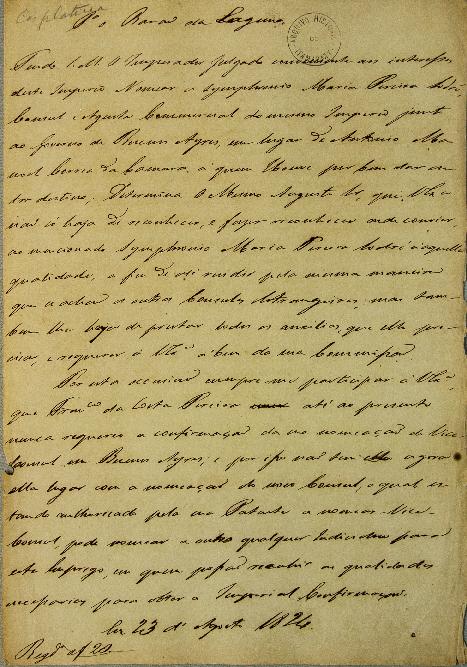 Cisplatina
Ao Barão da Laguna
Tendo S. M. O Imperador julgado conveniente aos interesses
deste Imperio Nomear a Symphronio Maria Pereira Sodré,
Consul e Agente Commercial do mesmo Imperio junto
ao Governo de Buenos Ayres, em lugar de Antonio Ma
noel Correa da Camara, a quem Houve por bem dar ou
tro destino; Determina O Mesmo Augusto Sr. que V. Ex.ª
haja de reconhecer, e fazer reconhecer onde convier,
ao mencionado Symphronio Maria Pereira Sodré n'aquella
qualidade, a fim de ali residir pela mesma maneira
que se achão os outros Consules Estrangeiros, mas tam-
bem lhe haja de prestar todos os auxilios, que elle pre-
cisar, e requerer á V. Ex.ª a bem da sua Commissão.
Por esta occasião cumpre-me participar á V. Ex.ª,
que Fran.co da Costa Pereira até ao presente
nunca requereu a confirmação da sua nomeação de Vice
Consul em Buenos Ayres, e por isso não tem agora
ella lugar com a nomeação do novo Consul, o qual es-
tando authorisado pela sua Patente a nomear Vice-
Consul, pode nomear a outro qualquer Individuo para
este Emprego, em quem possão recahir as qualidades
necessarias para obter a Imperial Confirmação.
Em 23 d'Agosto 1824.
Reg.do a f 22